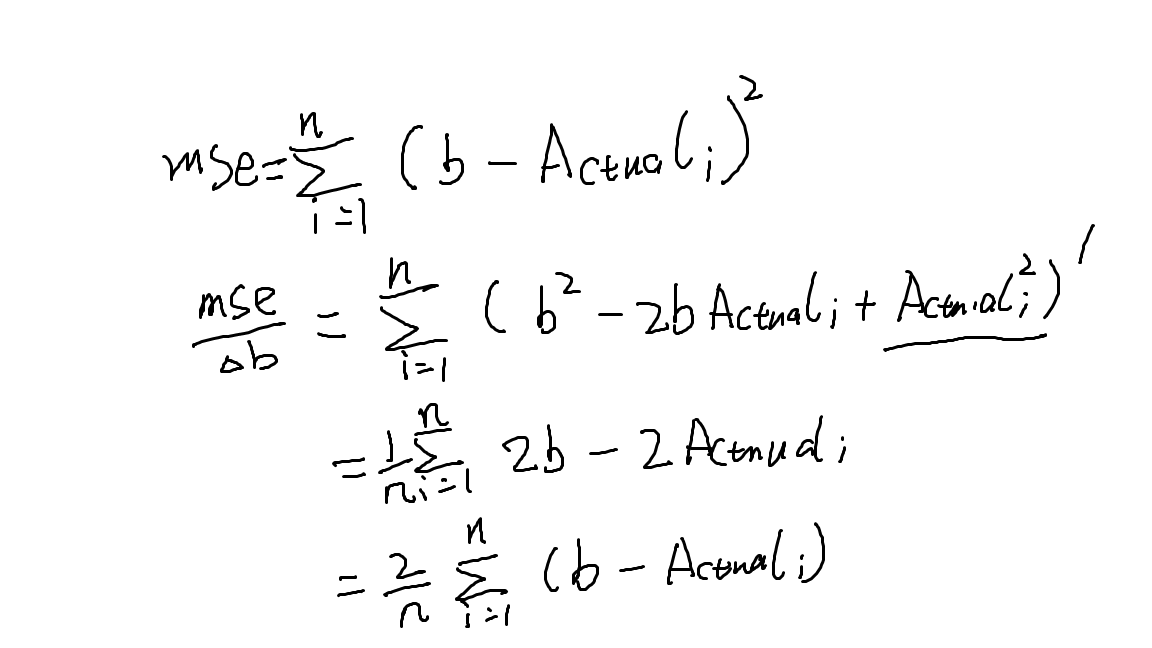 mse = \sum_{i=1}^{n} (b - Actual_i)^2
\frac{mse}{\Delta b} = \sum_{i=1}^{n} (b^2 - 2b Actual_i + \underline{Actual_i^2})'
= \frac{1}{n} \sum_{i=1}^{n} 2b - 2 Actual_i
= \frac{2}{n} \sum_{i=1}^{n} (b - Actual_i)